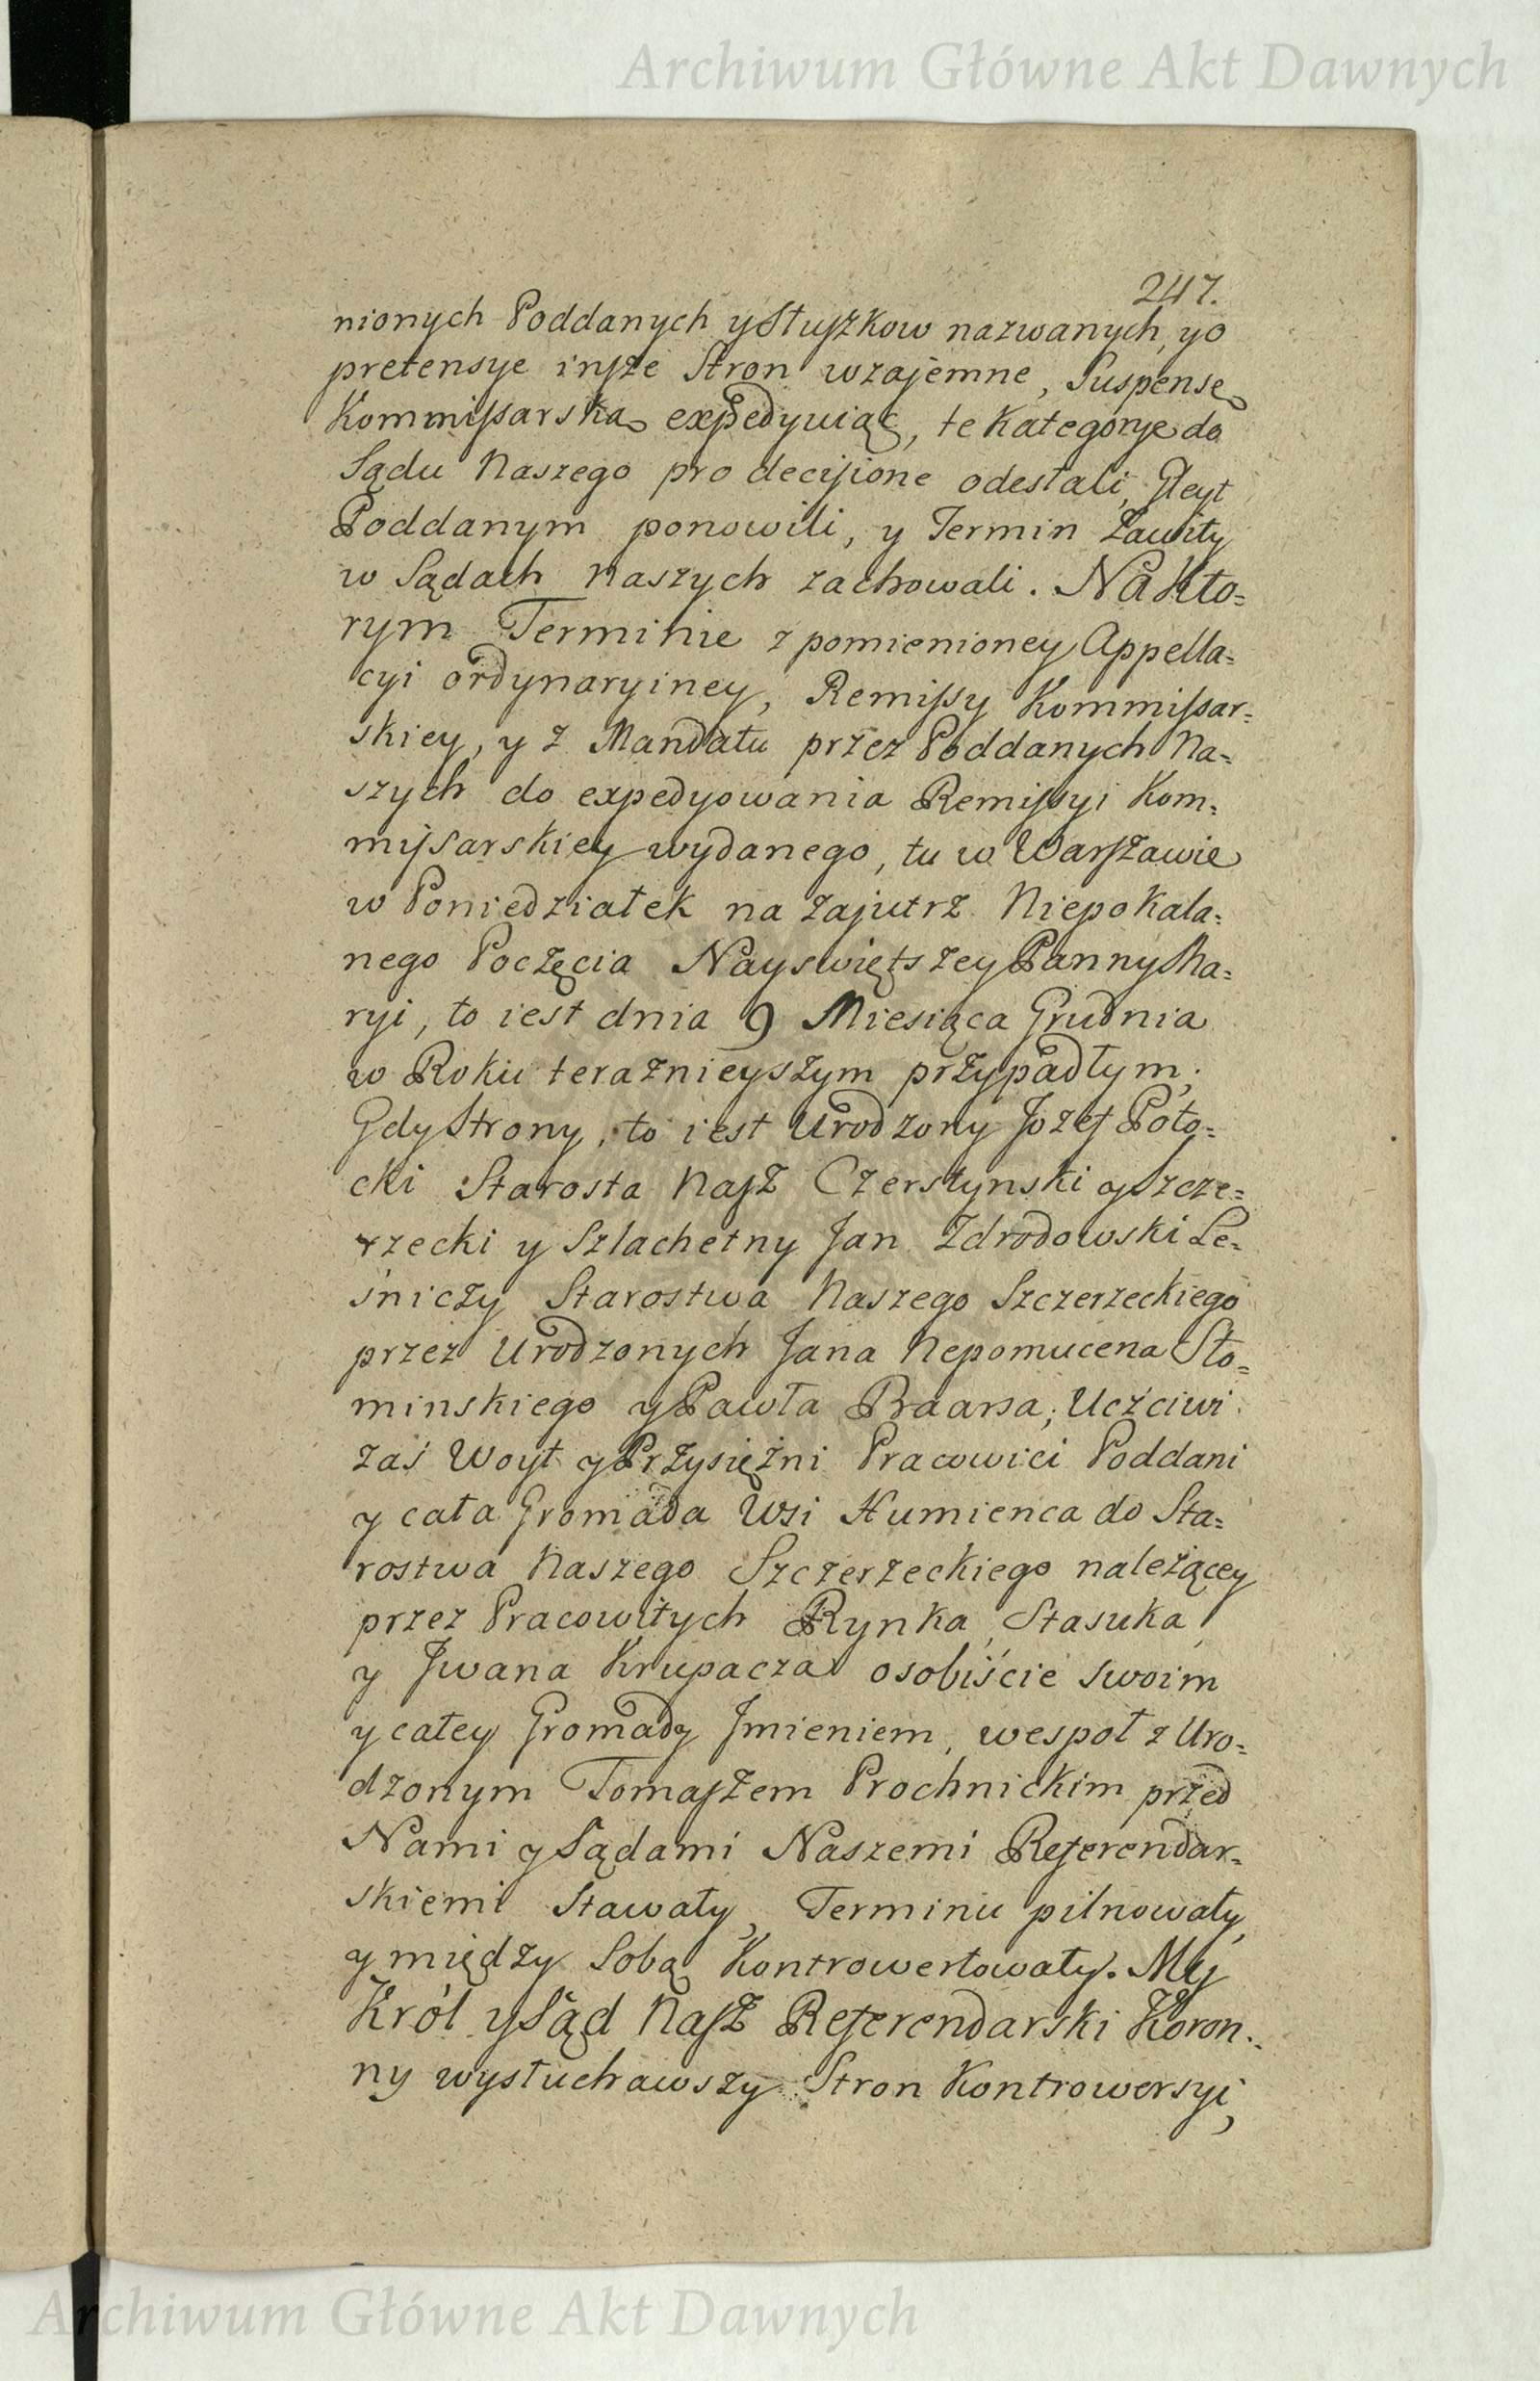 Archiwum Główne Akt Dawnych
247.
nionych Poddanych y Słuszkow nazwanych, y o
pretensye insze Stron wzajemne, Suspensę
Kommissarską expedyuiąc, te Kategorye do
Sądu Naszego pro decisione odesłali, Gleyt
Poddanym ponowili, y Termin Zawity
w Sądach Naszych zachowali. Na Kto=
rym Terminie z pomienioney Appella=
cyi ordynaryiney, Remissy Kommissar=
skiey, y z Mandatu przez Poddanych Na=
szych do expedyowania Remissyi Kom=
missarskiey wydanego, tu w Warszawie
w Poniedziałek na zajutrz Niepokala=
nego Poczęcia Nayswiętszey Panny Ma=
ryi, to iest dnia 9 Miesiąca Grudnia
w Roku teraznieyszym przypadłym;
Gdy Strony, to iest Urodzony Jozef Poto=
cki Starosta Nasz Czerstynski y Szcze=
rzecki y Szlachetny Jan Zdrodowski Le=
śniczy Starostwa Naszego Szczerzeckiego
przez Urodzonych Jana Nepomucena Sło=
minskiego y Pawła Braarsa; Uczciwi
zaś Woyt y Przysiężni Pracowici Poddani
y cała Gromada Wsi Humienca do Sta=
rostwa Naszego Szczerzeckiego należącey
przez Pracowitych Rynka, Stasuka,
y Jwana Krupacza osobiście swoim
y całey Gromady Jmieniem, wespoł z Uro=
dzonym Tomaszem Prochnickim przed
Nami y Sądami Naszemi Referendar=
skiemi Stawały, Terminu pilnowały,
y między Sobą Kontrowertowały. My
Król y Sąd Nasz Referendarski Koron=
ny wysłuchawszy Stron Kontrowersyi,
Archiwum Główne Akt Dawnych